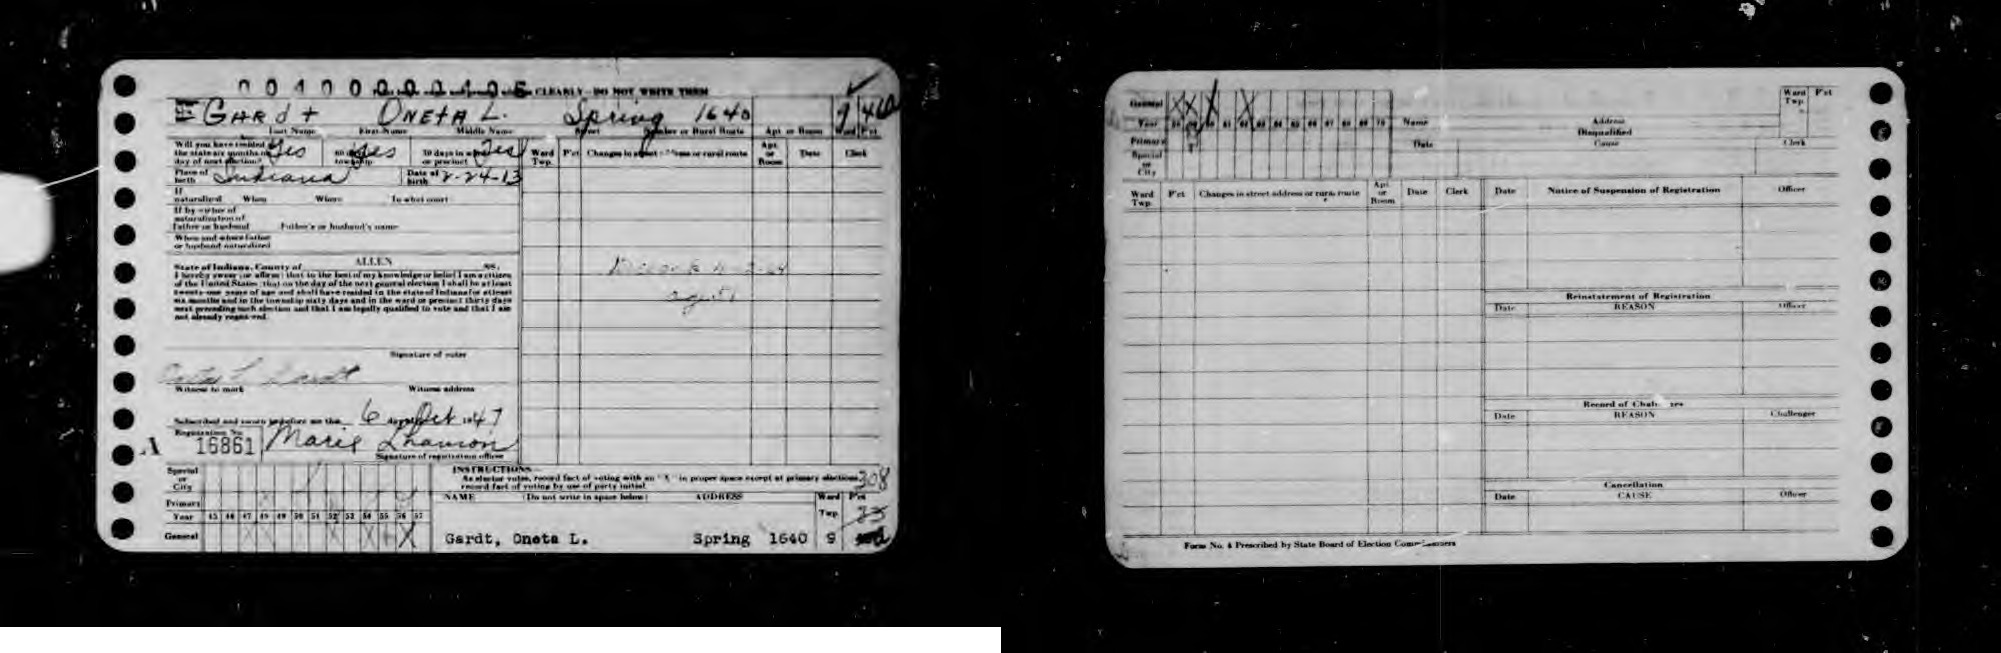 CLEARLY - DO NOT WRITE THEM
Gardt Oneta L. Spring 1640 9
Last Name First Name Middle Name Street Number or Rural Route Apt or Room Ward P'ct
Will you have resided in the state six months on day of next election? Yes 60 days township Yes 30 days in or precinct Yes
Ward Twp. P'ct Changes in street address or rural route Apt. or Room Date Clerk
Place of birth Indiana Date of birth 2-24-13
If naturalized When Where In what court
If by virtue of naturalization of father or husband Father's or husband's name
When and where father or husband naturalized
State of Indiana, County of ALLEN ss.
I hereby swear (or affirm) that to the best of my knowledge or belief I am a citizen
of the United States; that on the day of the next general election I shall be at least
twenty-one years of age and shall have resided in the state of Indiana for at least
six months and in the township sixty days and in the ward or precinct thirty days
next preceding such election and that I am legally qualified to vote and that I am
not already registered.
age 51
Signature of voter
Oneta L. Gardt
Witness to mark Witness address
Subscribed and sworn to before me this 6 day of Oct 1947
Registration No.
A 16861 Marie
Signature of registration officer
INSTRUCTIONS
As elector votes, record fact of voting with an "X" in proper space except at primary elections,
record fact of voting by use of party initial.
308
Special or City
Primary
Year 45 46 47 48 49 50 51 52 53 54 55 56 57
General
NAME (Do not write in space below) ADDRESS Ward Twp. P'ct
23
Gardt, Oneta L. Spring 1640 9
General
Year 58 59 60 61 62 63 64 65 66 67 68 69 70
Primary
Special or City
Name Address Ward Twp. P'ct
Disqualified
Date Cause Clerk
Ward Twp. P'ct Changes in street address or rural route Apt or Room Date Clerk
Date Notice of Suspension of Registration Officer
Reinstatement of Registration
Date REASON Officer
Record of Challenges
Date REASON Challenger
Cancellation
Date CAUSE Officer
Form No. 4 Prescribed by State Board of Election Commissioners